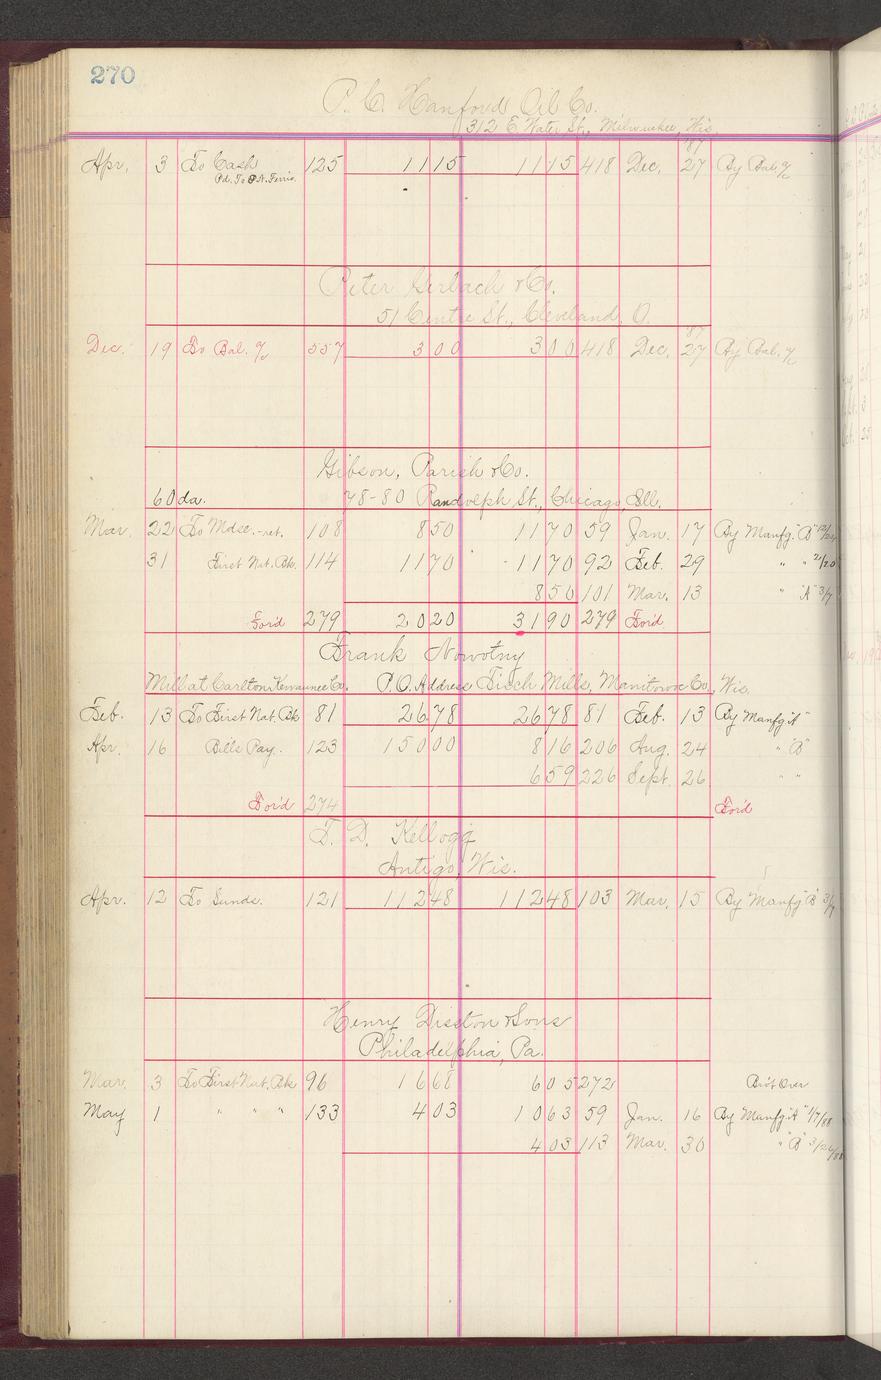 270
P. C. Hanford Oil Co.
312 E. Water St., Milwaukee, Wis.
'87
Apr. 3 To Cash 125 11 15 11 15 418 Dec. 27 By Bal. %
Pd. To O. N. Ferris.
Peter Gerlach & Co.
51 Centre St., Cleveland, O.
'87
Dec. 19 To Bal. % 557 3 00 3 00 418 Dec. 27 By Bal. %
Gibson, Parish & Co.
60 da. 78-80 Randolph St., Chicago, Ill.
Mar. 22 To Mdse.-ret. 108 8 50 11 70 59 Jan. 17 By Manfg. "B" 12/24
31 First Nat. Bk. 114 11 70 11 70 92 Feb. 29 " " 2/20
8 50 101 Mar. 13 " "A" 3/7
For'd 279 20 20 31 90 279 For'd
Frank Nowotny
Mill at Carlton, Kewaunee Co. P.O. Address Tisch Mills, Manitowoc Co., Wis.
Feb. 13 To First Nat. Bk 81 26 78 26 78 81 Feb. 13 By Manfg "A"
Apr. 16 Bills Pay. 123 150 00 8 16 206 Aug. 24 " "B"
6 59 226 Sept. 26 " "
For'd 274 For'd
T. D. Kellogg
Antigo, Wis.
Apr. 12 To Sunds. 121 112 48 112 48 103 Mar. 15 By Manfg "B" 3/7
Henry Disston & Sons
Philadelphia, Pa.
Mar. 3 To First Nat. Bk 96 16 68 6 05 272 Bro't Over
May 1 " " " 133 4 03 10 63 59 Jan. 16 By Manfg. "A" 1/7/88
4 03 113 Mar. 30 " "B" 3/26/88